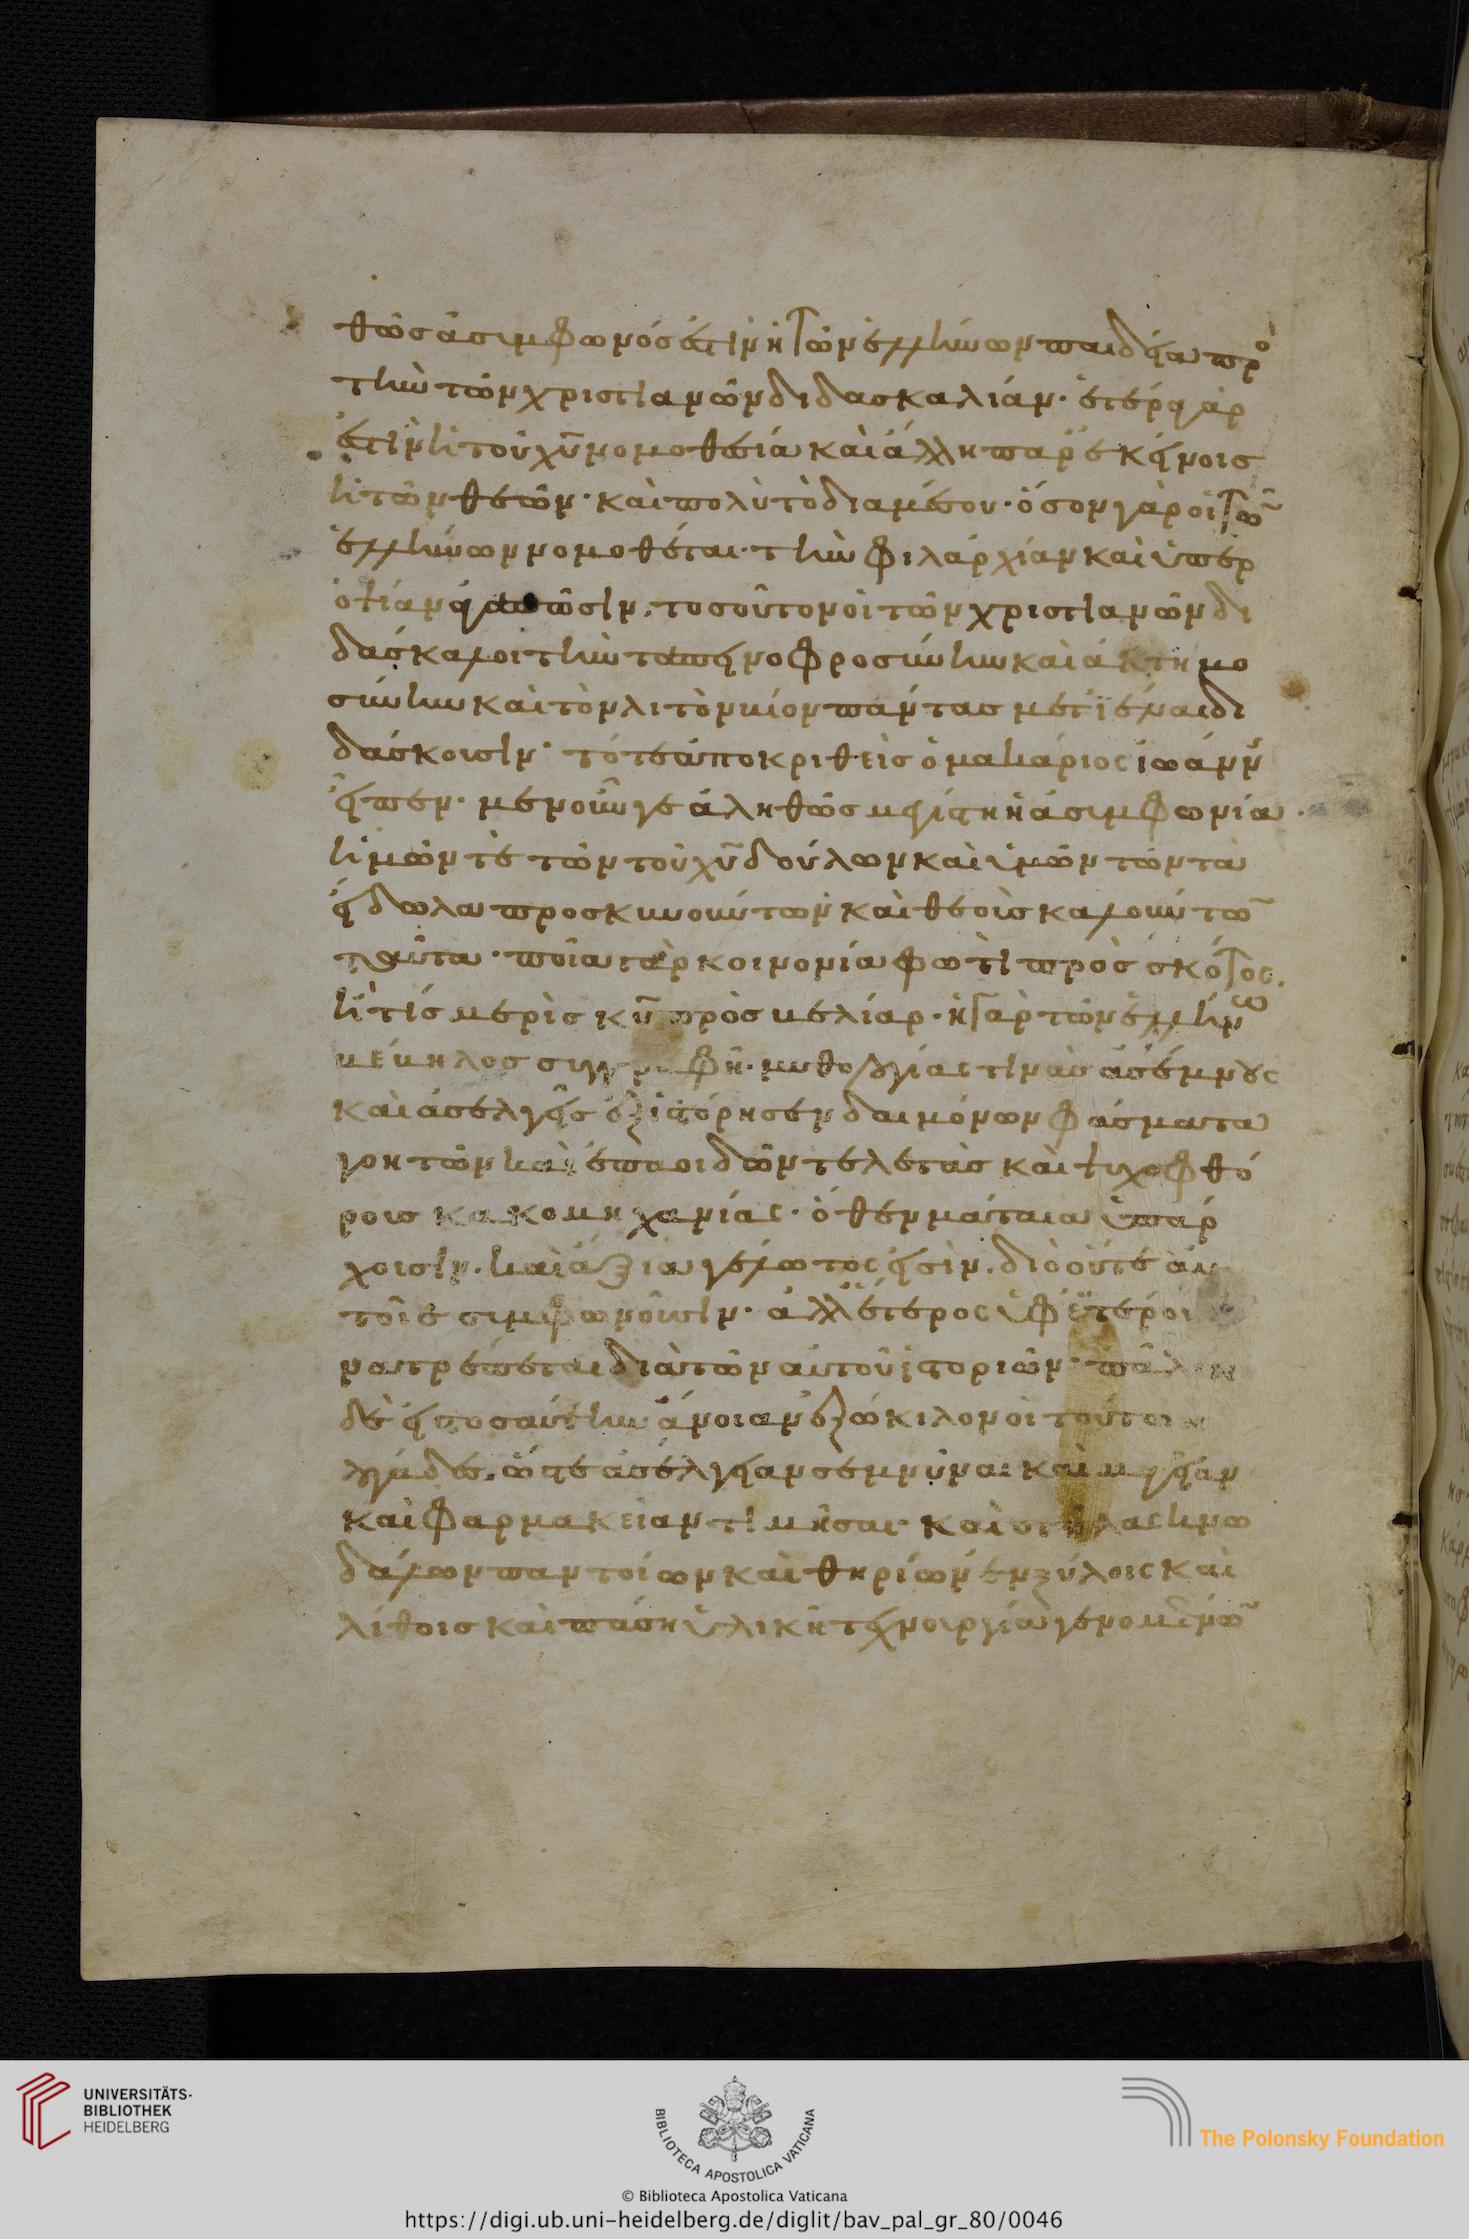 θῶς ἀσύμφωνός ἐστιν ἡ τῶν ἑλλήνων παιδεία πρὸ
τὴν τῶν χριστιανῶν διδασκαλίαν· ἑτέρα γὰρ
ἐστὶν ἡ τοῦ χυ νομοθεσία καὶ ἄλλη παρ' ἐκείνοις
ἡ τῶν θεῶν· καὶ πολὺ τὸ διαμέσου· ὅσον γὰρ οἱ τῶ
ἑλλήνων νομοθέται· τὴν φιλαρχίαν καὶ ὑπερ
οψίαν ἀγαπῶσιν, τοσοῦτον οἱ τῶν χριστιανῶν δι
δάσκαλοι τὴν ταπεινοφροσύνην καὶ ἀκτημο
σύνην καὶ τὸν λιτὸν βίον πάντας μετιέναι δι
δάσκουσιν· τότε ἀποκριθεὶς ὁ μακάριος ἰωάνν
εἶπεν· μενοῦνγε ἀληθῶς μεγίστη ἡ ἀσυμφωνία·
ἡμῶν τὲ τῶν τοῦ χυ δούλων καὶ ὑμῶν τῶν τὰ
εἴδωλα προσκυνούντων καὶ θεοὺς καλούντω
ταῦτα· ποία γὰρ κοινονία φωτὶ πρὸς σκότος.
ἢ τίς μερὶς κυ πρὸς βελίαρ· ἡ γὰρ τῶν ἑλλήνω
βέβηλος συγγραφὴ· μυθολογίας τινὰς ἀσέμνους
καὶ ἀσελγεῖς ἐξιστόρησεν δαιμόνων φάσματα
γοητῶν καὶ ἐπαοιδῶν τελετὰς καὶ ψυχοφθό
ρους κακομηχανίας· ὅθεν μάταια ὑπάρ
χουσιν. καὶ ἄξια γέλωτος εἰσὶν. διὸ οὔτε αυ
τοῖς συμφωνοῦσιν· ἀλλ' ἕτερος ὑφ' ἑτέρου
νατρέπεται διὰ τῶν αὐτοῦ ἱστοριῶν· πάλιν
δὲ εἰς τοσαύτην ἄνοιαν ἐξώκιλον οἱ τούτοι
λγάδες. ὥστε ἀσέλγειαν σεμνῦναι καὶ μαγείαν
καὶ φαρμακείαν τιμῆσαι· καὶ στήλας κνω
δάλων παντοίων καὶ θηρίων ἐν ξύλοις καὶ
λίθοις καὶ πάση ὑλικῆ τεχνουργία γενομένω
UNIVERSITÄTS-
BIBLIOTHEK
HEIDELBERG
BIBLIOTECA APOSTOLICA VATICANA
The Polonsky Foundation
© Biblioteca Apostolica Vaticana
https://digi.ub.uni-heidelberg.de/diglit/bav_pal_gr_80/0046